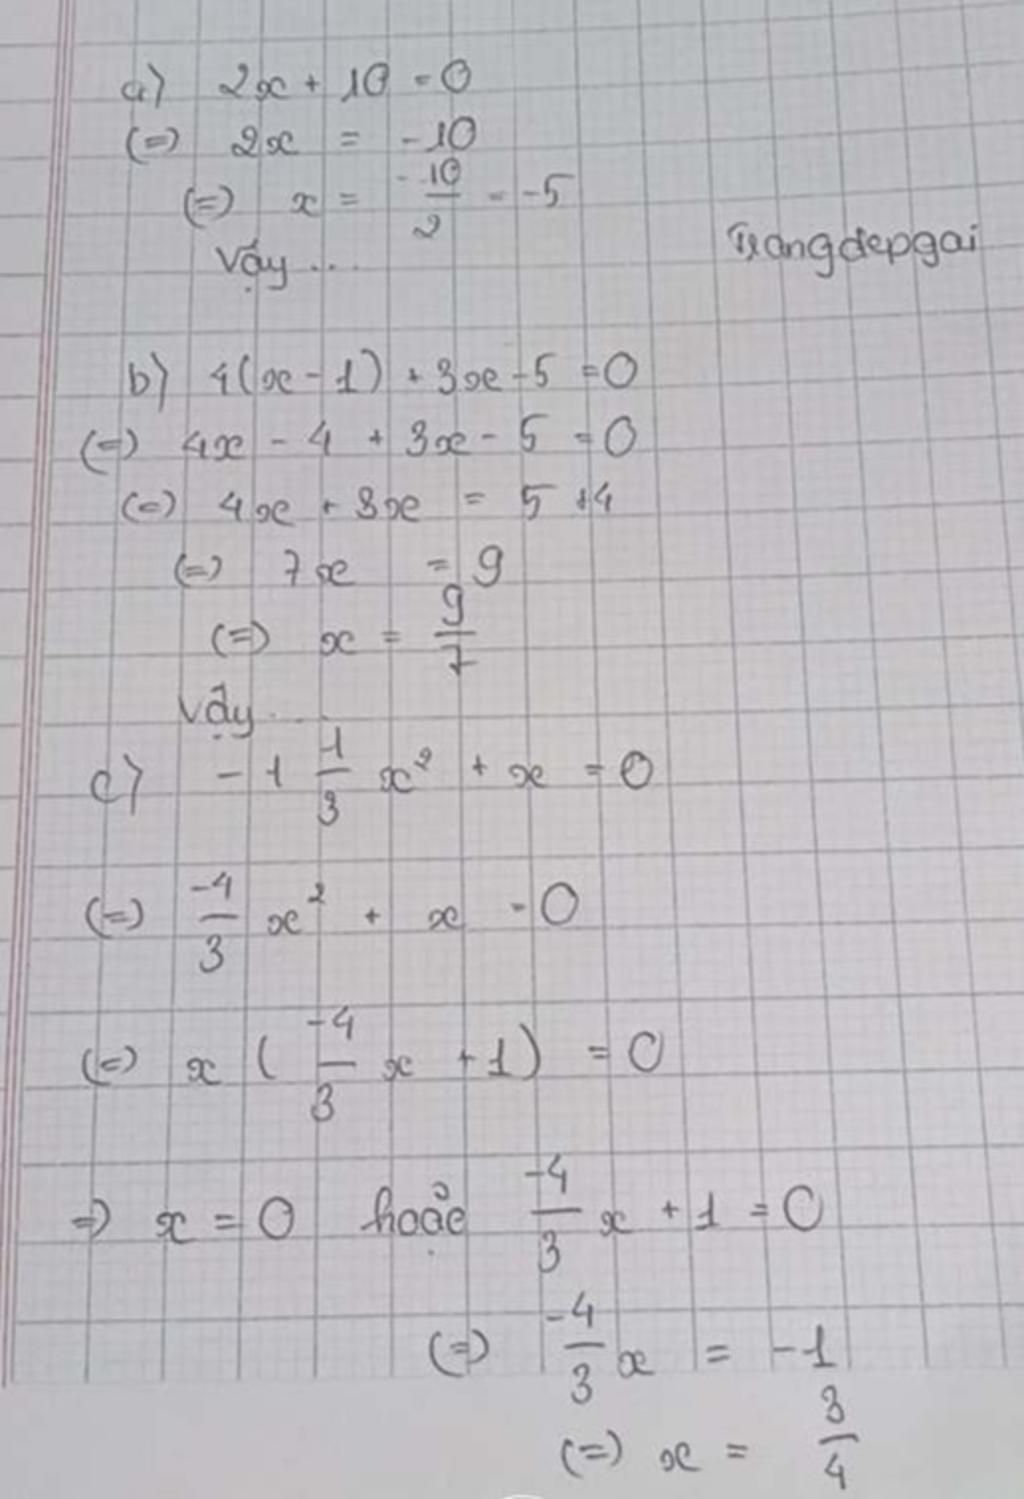 a) 2x + 10 = 0
(=) 2x = -10
(=) x = -10/2 = -5
Vậy ...
Trangdepgai
b) 4(x - 1) + 3x - 5 = 0
(=) 4x - 4 + 3x - 5 = 0
(=) 4x + 3x = 5 + 4
(=) 7x = 9
(=) x = 9/7
Vậy ...
c) - 1 1/3 x² + x = 0
(=) -4/3 x² + x = 0
(=) x ( -4/3 x + 1 ) = 0
=) x = 0 hoặc -4/3 x + 1 = 0
(=) -4/3 x = -1
(=) x = 3/4